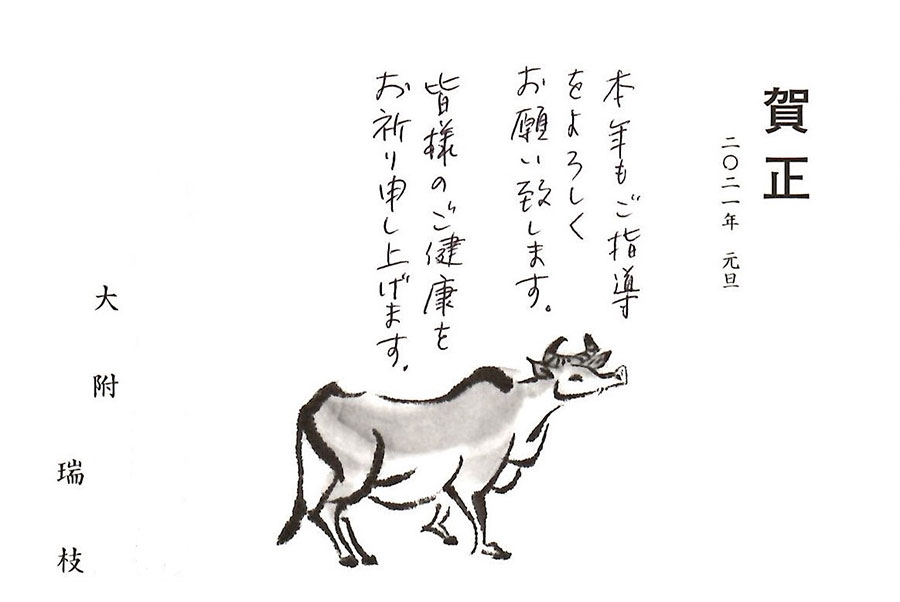 賀正
二〇二一年 元旦
本年もご指導
をよろしく
お願い致します。
皆様のご健康を
お祈り申し上げます。
大附
瑞枝